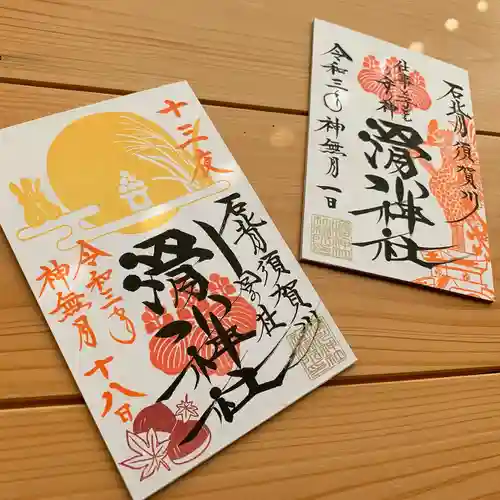 十三夜
石背 須賀川
滑川神社
令和三年
神無月 十八日
石背 須賀川
滑川神社
令和三年 神無月 一日